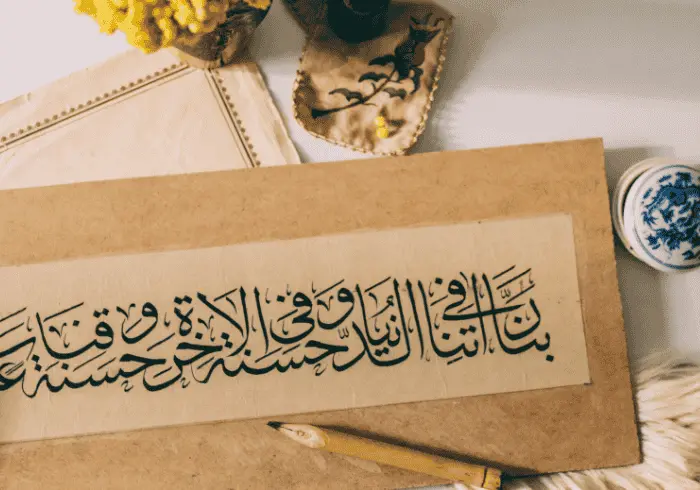 ربنا اتنا في الدنيا حسنة وفي الاخرة حسنة وقنا